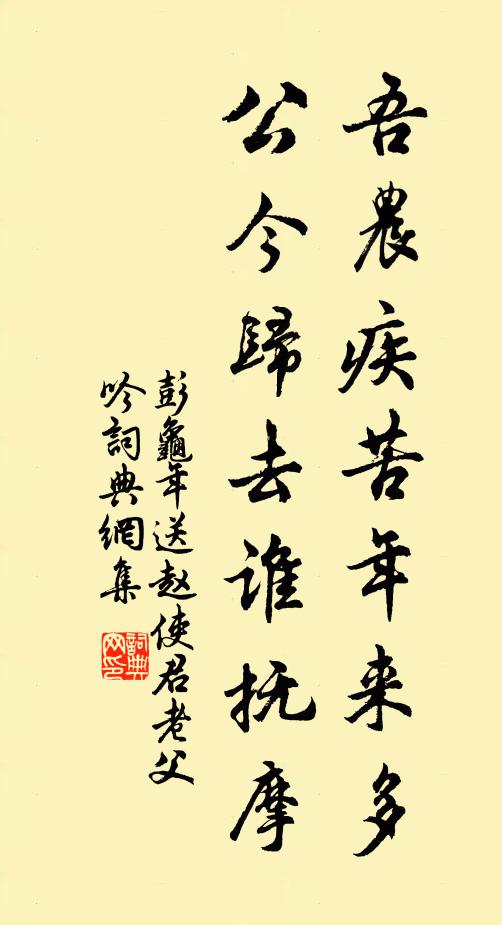 吾農疾苦年来多
公今歸去誰抚摩
彭龜年送赵使君老父
吟詞典網集
詞典网印